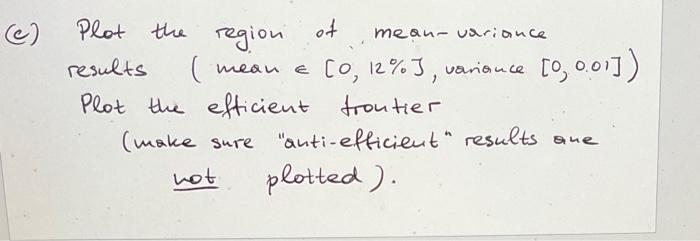 (e) Plot the region of mean-variance
results ( mean ∈ [0, 12%], variance [0, 0.01])
Plot the efficient frontier
(make sure "anti-efficient" results are
not plotted).